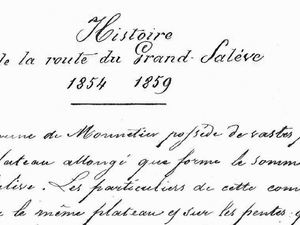 Histoire
de la route du Grand-Salève
1854 1859
mune de Monnetier possède de vastes
plateau allongé que forme le somm
élève. Les particuliers de cette com
le même plateau et sur les pentes q